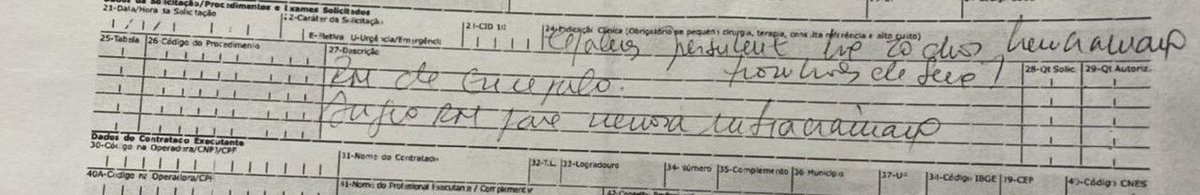 Dados da Solicitação/Procedimentos e Exames Solicitados
21-Data/Hora da Solicitação 22-Caráter da Solicitação 23-CID 10 24-Indicação Clínica (Obrigatório se pequena cirurgia, terapia, consulta referência e alto custo)
E-Eletiva U-Urgência/Emergência Cefaleia há 20 dias
25-Tabela 26-Código do Procedimento 27-Descrição 28-Qt Solic. 29-Qt Autoriz.
RM de Encefalo.
Angio RM fase venosa intracraniano
Dados do Contratado Executante
30-Código na Operadora/CNPJ/CPF 31-Nome do Contratado 32-T.L. 33-Logradouro 34-Número 35-Complemento 36-Município 37-UF 38-Código IBGE 39-CEP 40-Código CNES
40A-Código na Operadora/CPF 41-Nome do Profissional Executante / Complementar